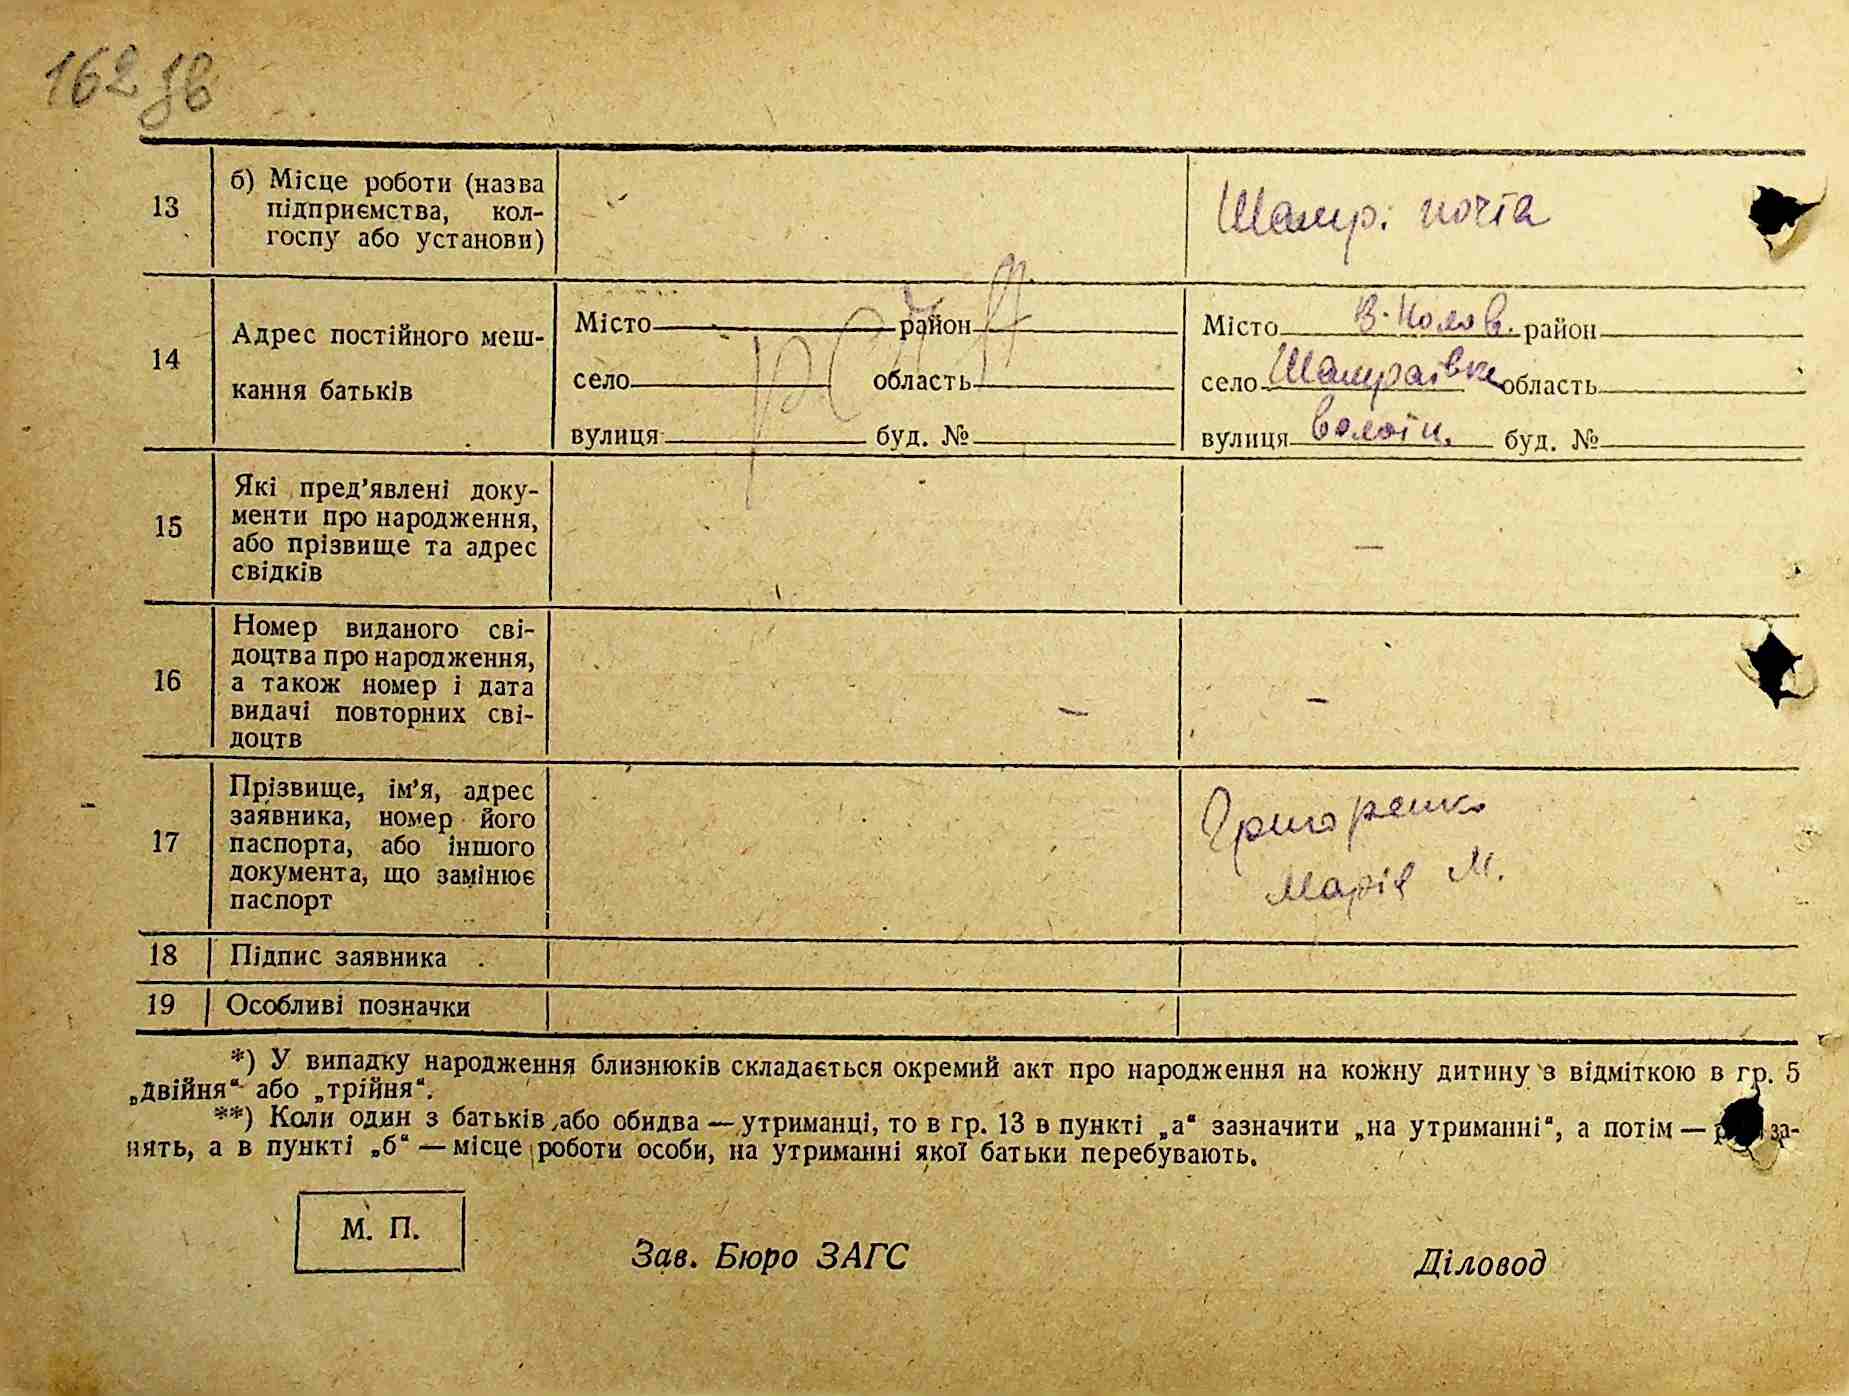 162 зв
13
б) Місце роботи (назва
підприємства, кол-
госпу або установи)
Шамр. почта
14
Адрес постійного меш-
кання батьків
Місто район
село область
вулиця буд. №
Місто район
село Шамраївка область
вулиця буд. №
15
Які пред’явлені доку-
менти про народження,
або прізвище та адрес
свідків
—
16
Номер виданого сві-
доцтва про народження,
а також номер і дата
видачі повторних сві-
доцтв
— —
17
Прізвище, ім’я, адрес
заявника, номер його
паспорта, або іншого
документа, що замінює
паспорт
Григоренко
Марія М.
18 Підпис заявника
19 Особливі позначки
*) У випадку народження близнюків складається окремий акт про народження на кожну дитину з відміткою в гр. 5
„двійня“ або „трійня“.
**) Коли один з батьків або обидва — утриманці, то в гр. 13 в пункті „а“ зазначити „на утриманні“, а потім — за-
нять, а в пункті „б“ — місце роботи особи, на утриманні якої батьки перебувають.
М. П.
Зав. Бюро ЗАГС Діловод